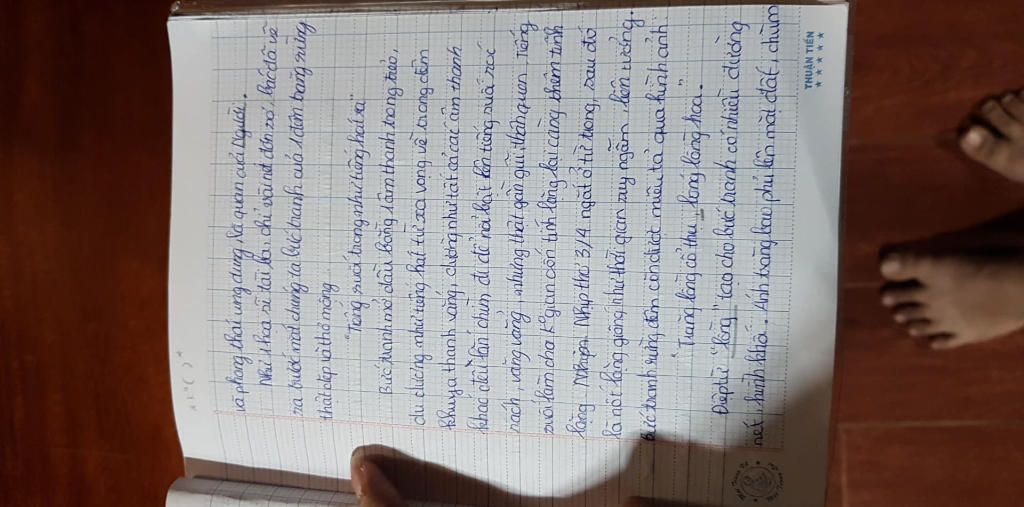 và phong thái ung dung, lạc quan của Người.
Như thoa sĩ tài ba. chỉ vài nét đơn sơ, bác đã vẽ
ra trước mắt chúng ta bức tranh của 1 đêm trăng rừng
thật đẹp và thơ mộng.
"Tiếng suối trong như tiếng hát xa"
Bức tranh mở đầu bằng 1 âm thanh trong trẻo,
du dương như tiếng hát từ xa vọng về trong đêm
khuya thanh vắng, dường như tất cả các âm thanh
khác đều lẩn chìm đi để nổi bật lên tiếng suối róc
rách, văng vẳng, nhưng thật gần gũi, thân quen. Tiếng
suối làm cho k°gian vốn tĩnh lặng lại càng thêm tĩnh
lặng. Nhịp thơ 3/4 ngắt ở từ trong, sau đó
là nốt lặng giống như thời gian suy ngẫm, liên tưởng.
Bức tranh rừng đêm còn được miêu tả qua hình ảnh
"Trăng lồng cổ thụ, bóng lồng hoa."
Điệp từ "lồng" tạo cho bức tranh có nhiều đường
nét, hình khối. Ánh trăng bao phủ lên mặt đất, chùm
THUẬN TIẾN